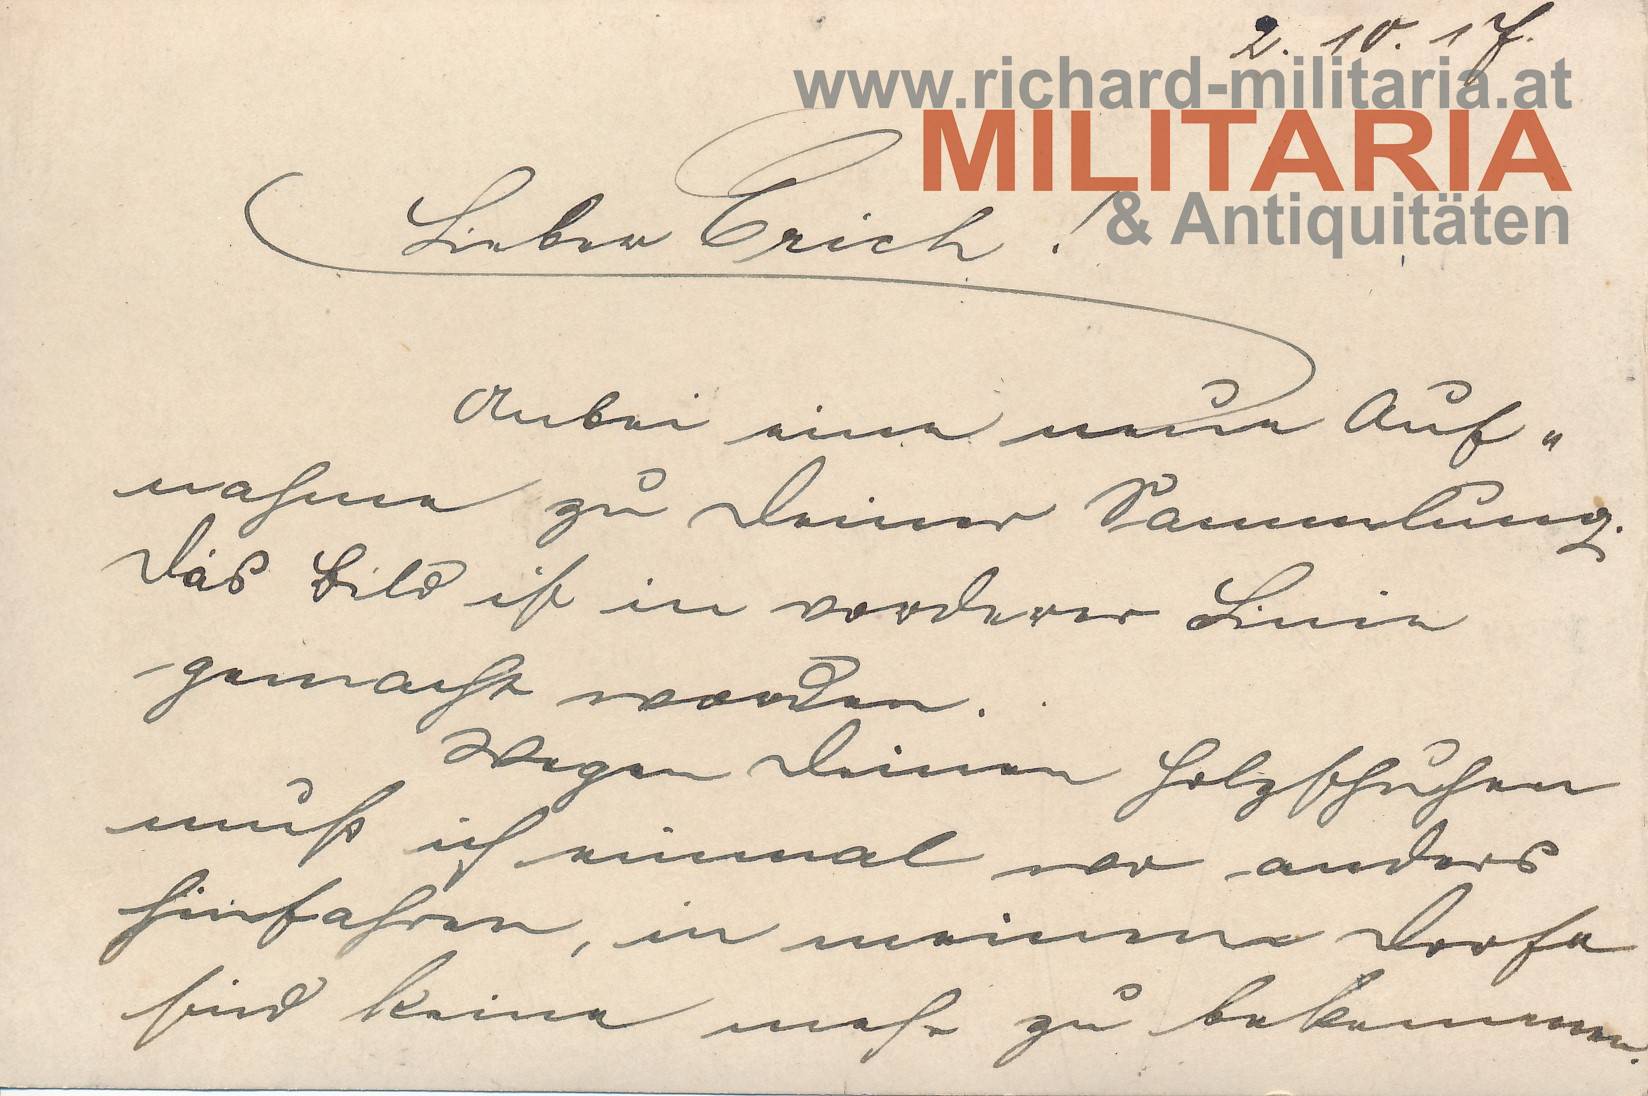 2. 10. 17.
www.richard-militaria.at
MILITARIA
& Antiquitäten
Lieber Erich!
Anbei eine neue Auf„
nahme zu Deiner Sammlung.
Das Bild ist in vorderer Linie
gemacht worden.
Wegen Deinen Holzschuhen
muß ich einmal wo anders
hinfahren, in meinem Dorfe
sind keine mehr zu bekommen.